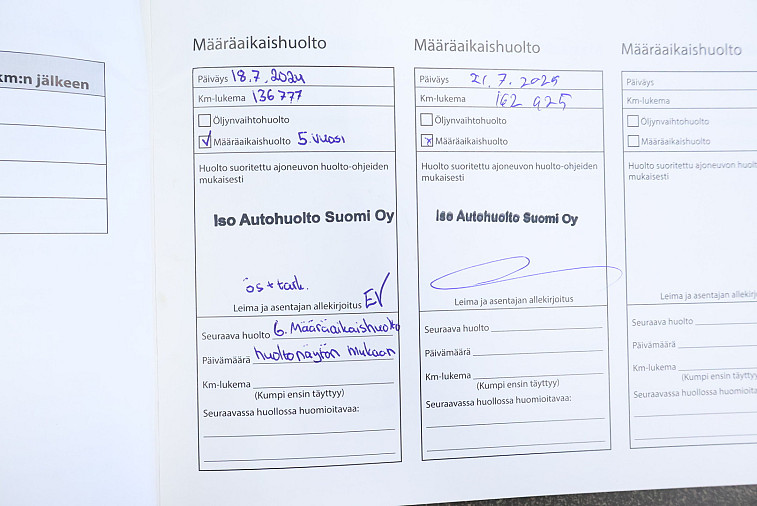 km:n jälkeen
Määräaikaishuolto
Päiväys 18.7.2024
Km-lukema 136777
Öljynvaihtohuolto
Määräaikaishuolto 5.vuosi
Huolto suoritettu ajoneuvon huolto-ohjeiden
mukaisesti
Iso Autohuolto Suomi Oy
ös + tark.
EV
Leima ja asentajan allekirjoitus
Seuraava huolto 6. Määräaikaishuolto
Päivämäärä huoltonäytön mukaan
Km-lukema
(Kumpi ensin täyttyy)
Seuraavassa huollossa huomioitavaa:
Määräaikaishuolto
Päiväys 21.7.2025
Km-lukema 162 925
Öljynvaihtohuolto
x Määräaikaishuolto
Huolto suoritettu ajoneuvon huolto-ohjeiden
mukaisesti
Iso Autohuolto Suomi Oy
Leima ja asentajan allekirjoitus
Seuraava huolto
Päivämäärä
Km-lukema
(Kumpi ensin täyttyy)
Seuraavassa huollossa huomioitavaa:
Määräaikaishuolto
Päiväys
Km-lukema
Öljynvaihtohuolto
Määräaikaishuolto
Huolto suoritettu ajoneuvon huolt
mukaisesti
Leima ja asentajan allekirj
Seuraava huolto
Päivämäärä
Km-lukema
(Kumpi ensin täytty
Seuraavassa huollossa huomioitavaa: